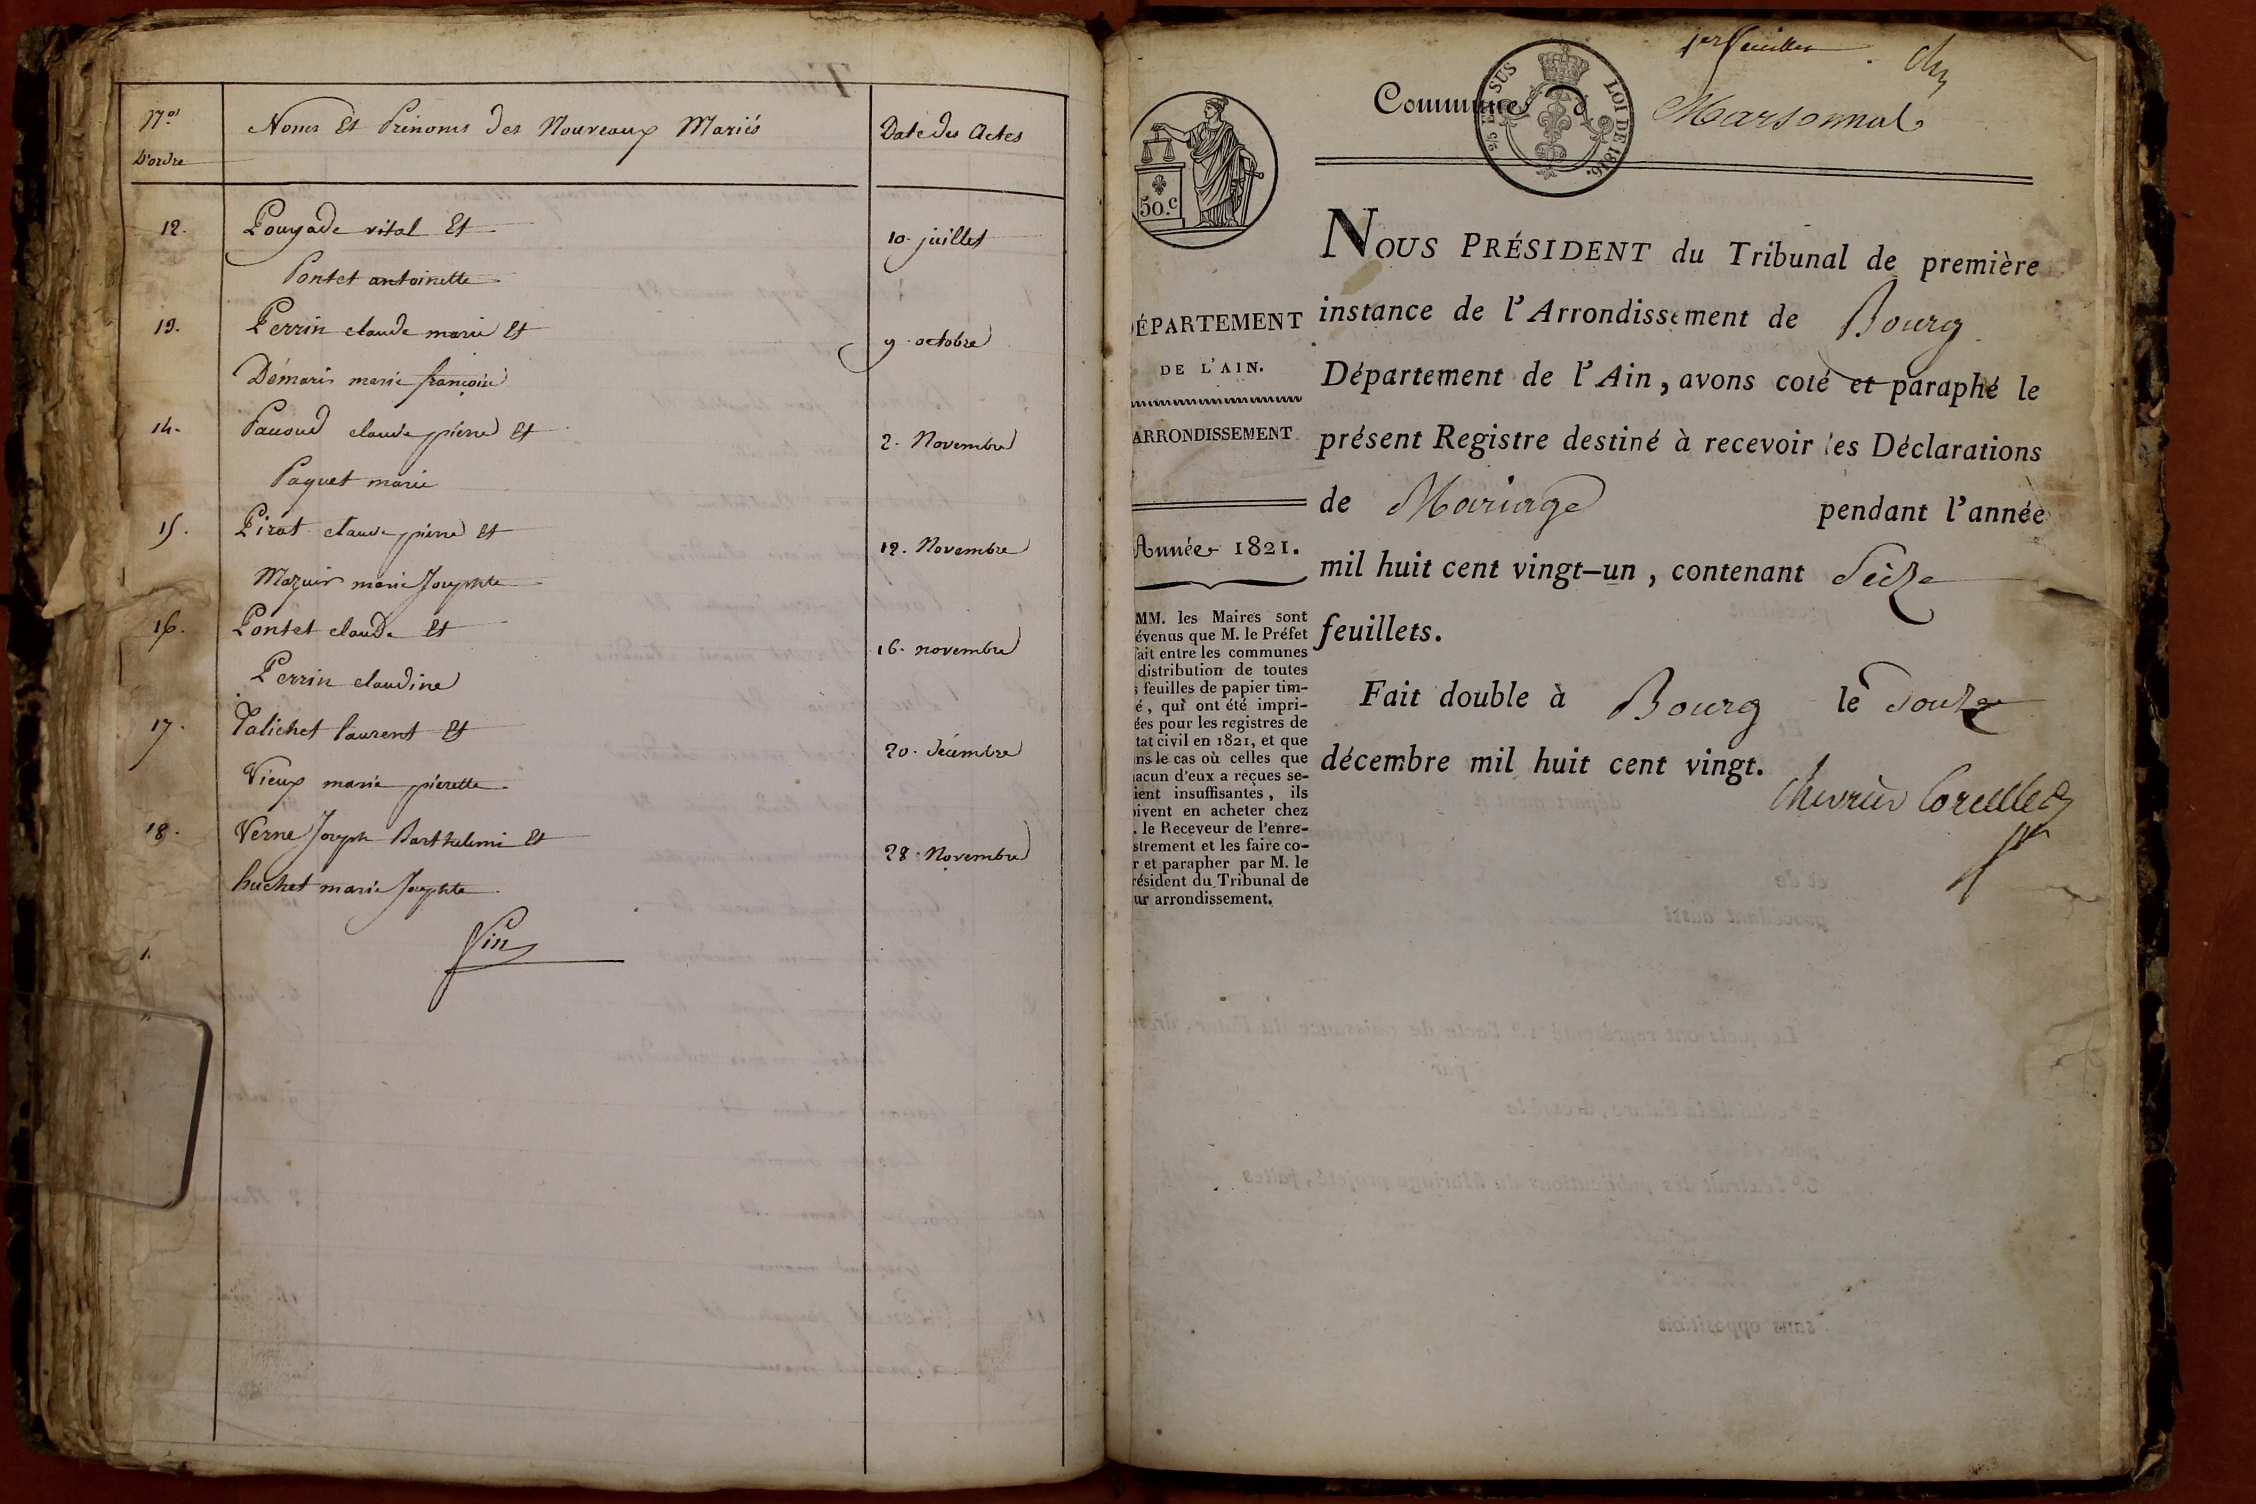 Nos
D'ordre
Noms Et Prénoms des Nouveaux Mariés
Date des Actes
12.
Pouyade vital Et
10. juillet
Pontet antoinette
13.
Perrin claude marie Et
9. octobre
Démaris marie françoise
14.
Pauoud claude pierre Et
2. Novembre
Paquet marie
15.
Pirat claude pierre Et
12. Novembre
Mazuir marie Josephte
16.
Pontet claude Et
16. novembre
Perrin claudine
17.
Talichet laurent Et
20. décembre
Vieux marie pierette
18.
Verne Joseph Barthelemi Et
28. Novembre
huchet marie Josephte
Fin
1er feuillet
Commune d Marsonnas
EN SUS
LOI DE 1816.
50.c
DÉPARTEMENT
DE L'AIN.
ARRONDISSEMENT
Année 1821.
MM. les Maires sont
évenus que M. le Préfet
fait entre les communes
distribution de toutes
s feuilles de papier tim-
é, qui ont été impri-
ées pour les registres de
tat civil en 1821, et que
ns le cas où celles que
acun d'eux a reçues se-
ient insuffisantes, ils
oivent en acheter chez
. le Receveur de l'enre-
strement et les faire co-
r et parapher par M. le
résident du Tribunal de
ur arrondissement.
NOUS PRÉSIDENT du Tribunal de première
instance de l'Arrondissement de Bourg
Département de l'Ain, avons coté et paraphé le
présent Registre destiné à recevoir les Déclarations
de Mariage pendant l'année
mil huit cent vingt-un, contenant Seize
feuillets.
Fait double à Bourg le douze
décembre mil huit cent vingt.
Chevrier Corcelles